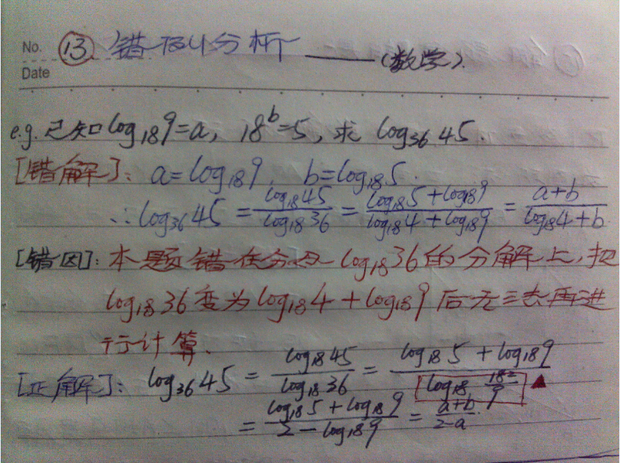 No. ⑬ 错例分析 ——(数学)
Date
e.g. 已知 log₁₈9=a, 18ᵇ=5, 求 log₃₆45.
[错解]: a=log₁₈9, b=log₁₈5.
∴log₃₆45 = log₁₈45/log₁₈36 = (log₁₈5+log₁₈9)/(log₁₈4+log₁₈9) = (a+b)/(log₁₈4+b)
[错因]: 本题错在分母log₁₈36的分解上, 把
log₁₈36变为log₁₈4+log₁₈9后无法再进
行计算.
[正解]: log₃₆45 = log₁₈45/log₁₈36 = (log₁₈5+log₁₈9)/(log₁₈ 18²/9) ▲
= (log₁₈5+log₁₈9)/(2-log₁₈9) = (a+b)/(2-a)